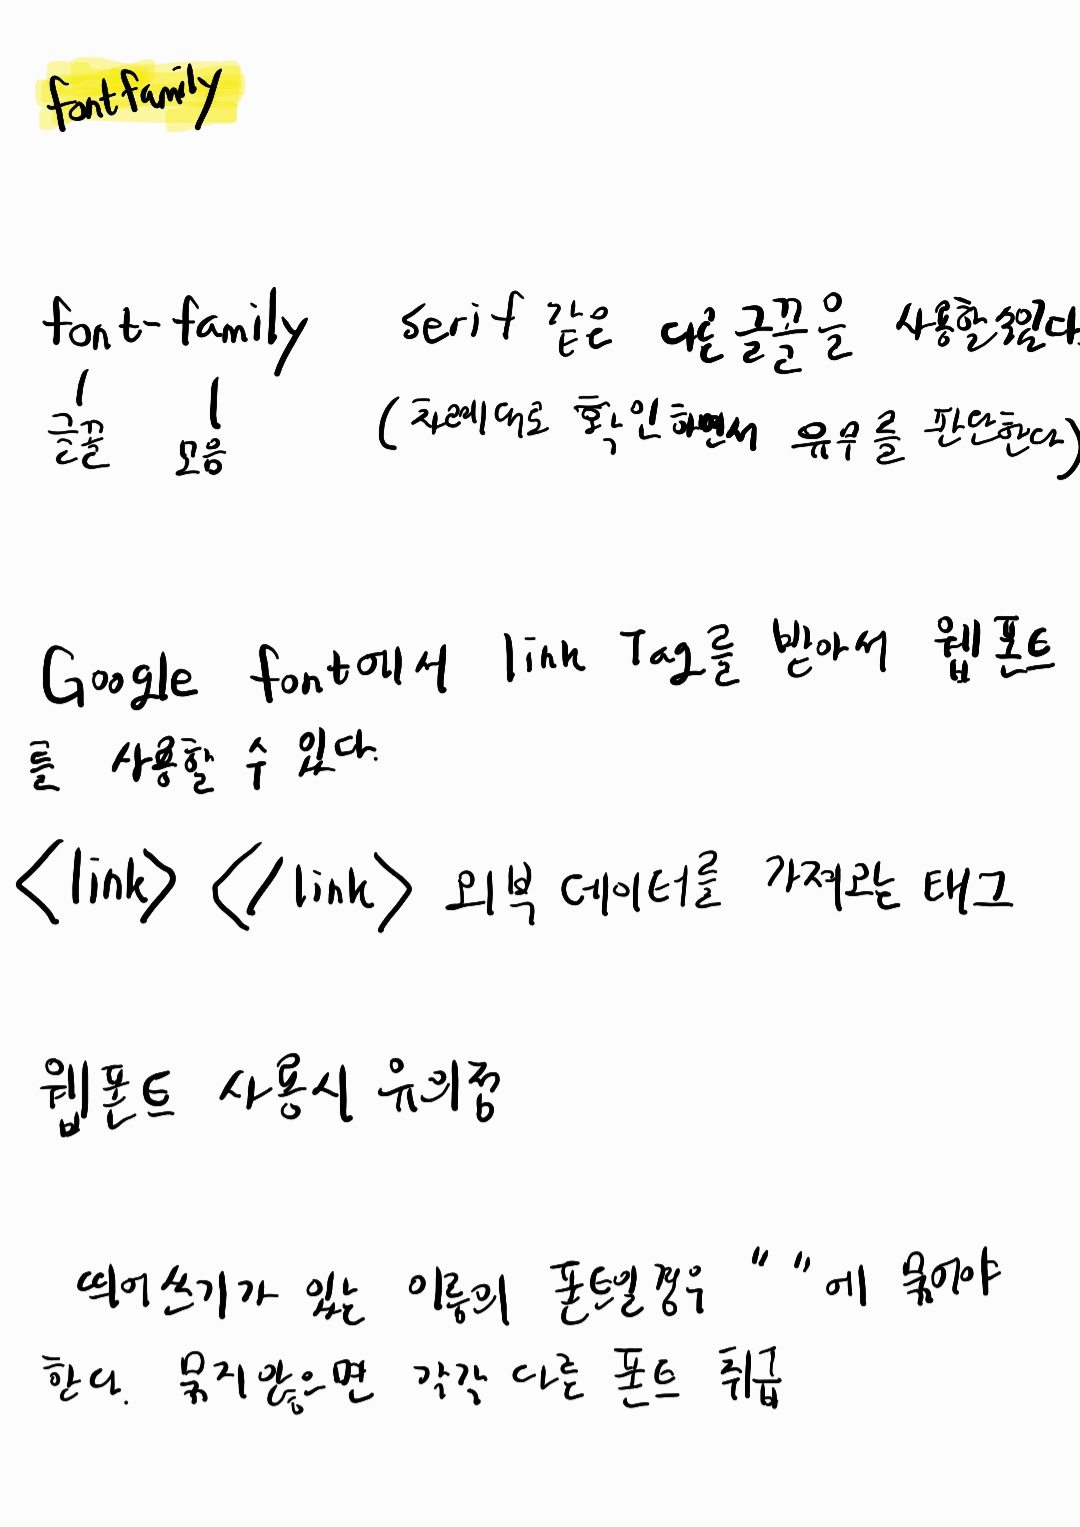 fontfamily
font-family serif 같은 다른 글꼴을 사용할수있다.
글꼴 모음 (차례대로 확인하면서 유무를 판단한다)
Google font에서 link Tag를 받아서 웹폰트
를 사용할 수 있다.
<link> </link> 외부 데이터를 가져오는 태그
웹폰트 사용시 유의점
띄어쓰기가 있는 이름의 폰트일경우 " "에 묶어야
한다. 묶지않으면 각각 다른 폰트 취급